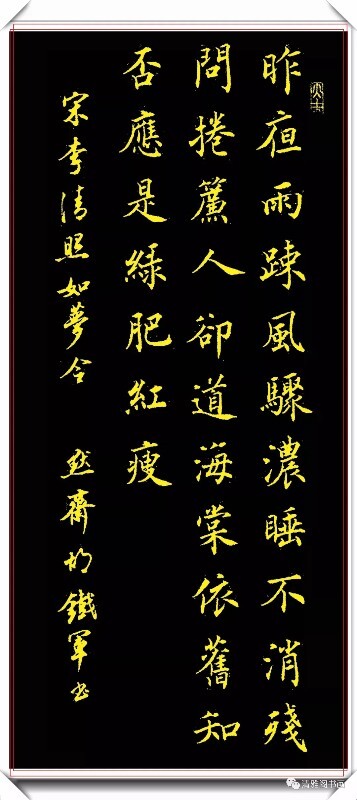 昨夜雨踈風驟濃睡不消殘
問捲簾人卻道海棠依舊知
否應是綠肥紅瘦
宋李清照如夢令 齋胡鐵軍书
清雅阁书画